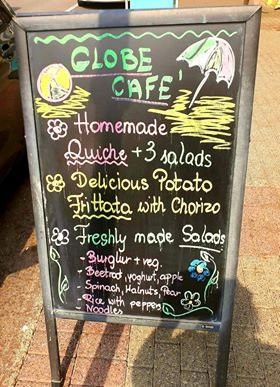 GLOBE
CAFE'
Homemade
Quiche + 3 salads
Delicious Potato
Frittata with Chorizo
Freshly made Salads
- Burglur + veg.
- Beetroot, yoghut, apple
- Spinach, Walnuts, Pear
- Rice with peppers
- Noodles